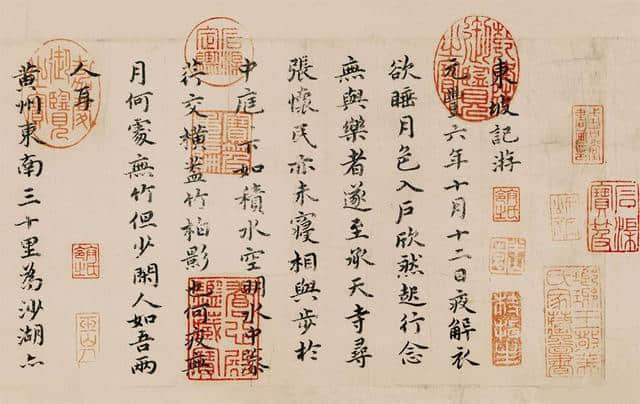 東坡記游
元豐六年十月十二日夜解衣
欲睡月色入戶欣然起行念
無與樂者遂至承天寺尋
張懷民亦未寢相與步於
中庭下如積水空明水中藻
荇交橫蓋竹柏影也何夜無
月何處無竹但少閑人如吾兩
人耳
黃州東南三十里為沙湖亦
石渠寶笈